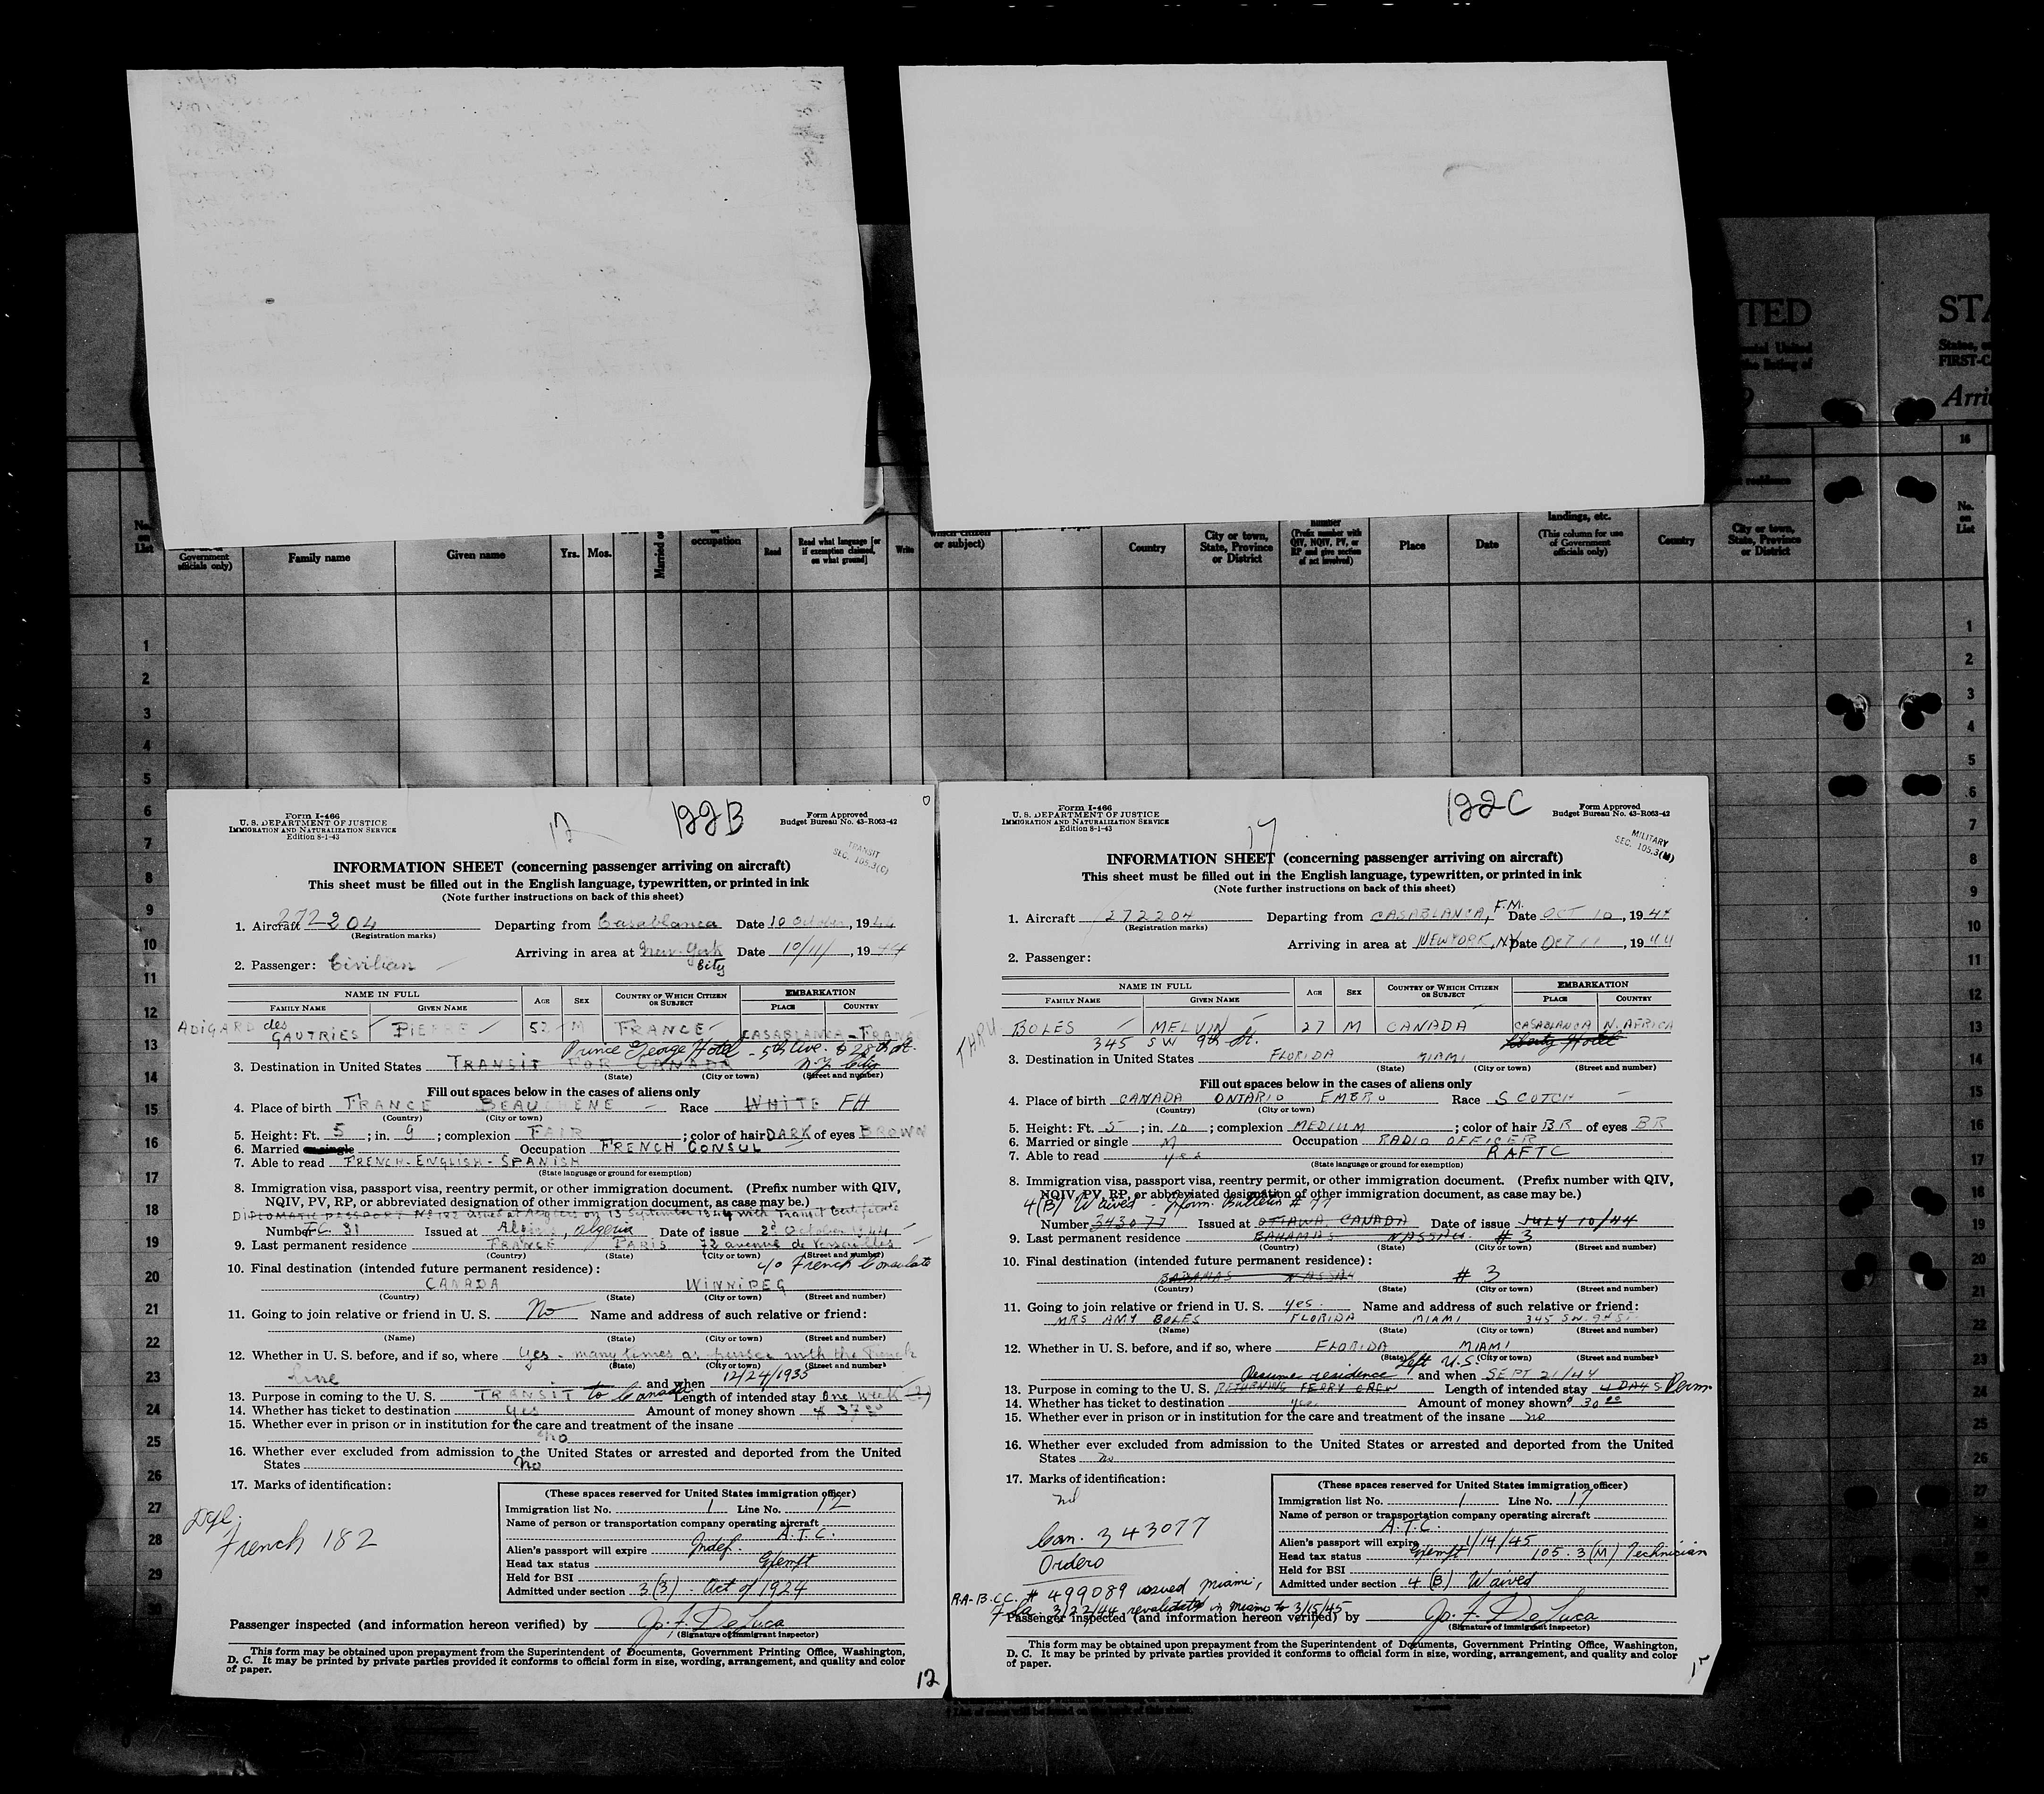 TED
STA
States, or
FIRST-C
Arri
16
No. on List
Government officials only)
Family name
Given name
Yrs.
Mos.
Married or
occupation
Read
Read what language [or if exemption claimed, on what ground]
Write
which citizen or subject)
Country
City or town, State, Province or District
number (Prefix number with QIV, NQIV, PV, or RP and give section of act involved)
Place
Date
landings, etc. (This column for use of Government officials only)
Country
City or town, State, Province or District
No. on List
Form I-466
U. S. DEPARTMENT OF JUSTICE
IMMIGRATION AND NATURALIZATION SERVICE
Edition 8-1-43
12
122B
Form Approved
Budget Bureau No. 43-R063-42
TRANSIT
SEC. 105.3(C)
INFORMATION SHEET (concerning passenger arriving on aircraft)
This sheet must be filled out in the English language, typewritten, or printed in ink
(Note further instructions on back of this sheet)
1. Aircraft 272204 Departing from Casablanca Date 10 October, 1944
(Registration marks)
Arriving in area at New-York City Date 10/11/, 1944
2. Passenger: Civilian
NAME IN FULL AGE SEX COUNTRY OF WHICH CITIZEN OR SUBJECT EMBARKATION
FAMILY NAME GIVEN NAME PLACE COUNTRY
ADIGARD des GAUTRIES PIERRE 52 M FRANCE CASABLANCA - FRANCE
Prince George Hotel - 5th Ave. & 28th St.
3. Destination in United States TRANSIT FOR CANADA NY City
(State) (City or town) (Street and number)
Fill out spaces below in the cases of aliens only
4. Place of birth FRANCE BEAUCHENE Race WHITE FH
(Country) (City or town)
5. Height: Ft. 5; in. 9; complexion FAIR; color of hair DARK of eyes BROWN
6. Married or single Occupation FRENCH CONSUL
7. Able to read FRENCH-ENGLISH-SPANISH
(State language or ground for exemption)
8. Immigration visa, passport visa, reentry permit, or other immigration document. (Prefix number with QIV,
NQIV, PV, RP, or abbreviated designation of other immigration document, as case may be.)
DIPLOMATIC PASSPORT No 182 issued at Algiers on 13 September 1944 with Transit Certificate
Number TC. 31 Issued at Algiers, algeria Date of issue 2d October 1944
9. Last permanent residence FRANCE PARIS 72 avenue de Versailles
(Country) (State) (City or town) (Street and number)
10. Final destination (intended future permanent residence): c/o French Consulate
CANADA WINNIPEG
(Country) (State) (City or town) (Street and number)
11. Going to join relative or friend in U. S. No Name and address of such relative or friend:
(Name) (State) (City or town) (Street and number)
12. Whether in U. S. before, and if so, where Yes - many times as purser with the French
(State) (City or town) (Street and number)
Line and when 12/24/1935
13. Purpose in coming to the U. S. TRANSIT to Canada Length of intended stay One week
14. Whether has ticket to destination Yes Amount of money shown $ 37.00
15. Whether ever in prison or in institution for the care and treatment of the insane
No
16. Whether ever excluded from admission to the United States or arrested and deported from the United
States No
17. Marks of identification:
Dipl.
French 182
(These spaces reserved for United States immigration officer)
Immigration list No. 1 Line No. 12
Name of person or transportation company operating aircraft
A.T.C.
Alien's passport will expire Indef.
Head tax status Exempt
Held for BSI
Admitted under section 3(3) - Act of 1924
Passenger inspected (and information hereon verified) by Jo. F. DeLuca
(Signature of immigrant inspector)
This form may be obtained upon prepayment from the Superintendent of Documents, Government Printing Office, Washington,
D. C. It may be printed by private parties provided it conforms to official form in size, wording, arrangement, and quality and color
of paper.
12
Form I-466
U. S. DEPARTMENT OF JUSTICE
IMMIGRATION AND NATURALIZATION SERVICE
Edition 8-1-43
17
122C
Form Approved
Budget Bureau No. 43-R063-42
MILITARY
SEC. 105.3(M)
INFORMATION SHEET (concerning passenger arriving on aircraft)
This sheet must be filled out in the English language, typewritten, or printed in ink
(Note further instructions on back of this sheet)
1. Aircraft 272204 Departing from CASABLANCA, F.M. Date OCT 10, 1944
(Registration marks)
Arriving in area at NEW YORK, NY Date OCT 11, 1944
2. Passenger:
NAME IN FULL AGE SEX COUNTRY OF WHICH CITIZEN OR SUBJECT EMBARKATION
FAMILY NAME GIVEN NAME PLACE COUNTRY
THRU BOLES MELVIN 27 M CANADA CASABLANCA N. AFRICA
345 SW 9th St. Liberty Hotel
3. Destination in United States FLORIDA MIAMI
(State) (City or town) (Street and number)
Fill out spaces below in the cases of aliens only
4. Place of birth CANADA ONTARIO EMBRO Race SCOTCH
(Country) (City or town)
5. Height: Ft. 5; in. 10; complexion MEDIUM; color of hair BR of eyes BR
6. Married or single M Occupation RADIO OFFICER
7. Able to read yes RAFTC
(State language or ground for exemption)
8. Immigration visa, passport visa, reentry permit, or other immigration document. (Prefix number with QIV,
NQIV, PV, RP, or abbreviated designation of other immigration document, as case may be.)
4(B) Waived - Inform. Bulletin # 77
Number 343077 Issued at OTTAWA, CANADA Date of issue JULY 10/44
9. Last permanent residence BAHAMAS NASSAU # 3
(Country) (State) (City or town) (Street and number)
10. Final destination (intended future permanent residence):
BAHAMAS NASSAU # 3
(Country) (State) (City or town) (Street and number)
11. Going to join relative or friend in U. S. yes. Name and address of such relative or friend:
MRS AMY BOLES FLORIDA MIAMI 345 SW. 9th ST.
(Name) (State) (City or town) (Street and number)
12. Whether in U. S. before, and if so, where FLORIDA MIAMI
(State) (City or town) (Street and number)
Resume residence Left U.S. and when SEPT 21/44
13. Purpose in coming to the U. S. RETURNING FERRY CREW Length of intended stay 4 DAYS Perm
14. Whether has ticket to destination yes Amount of money shown $ 30.00
15. Whether ever in prison or in institution for the care and treatment of the insane no
16. Whether ever excluded from admission to the United States or arrested and deported from the United
States no
17. Marks of identification:
nil
Can. 343077
Ordero
R.A.-B.C.C. # 499089 issued Miami,
Fla. 3/22/44 revalidated in miami to 3/15/45
(These spaces reserved for United States immigration officer)
Immigration list No. 1 Line No. 17
Name of person or transportation company operating aircraft
A.T.C.
Alien's passport will expire 1/14/45
Head tax status Exempt 105.3(M) Technician
Held for BSI
Admitted under section 4(B) Waived
Passenger inspected (and information hereon verified) by Jo. F. DeLuca
(Signature of immigrant inspector)
This form may be obtained upon prepayment from the Superintendent of Documents, Government Printing Office, Washington,
D. C. It may be printed by private parties provided it conforms to official form in size, wording, arrangement, and quality and color
of paper.